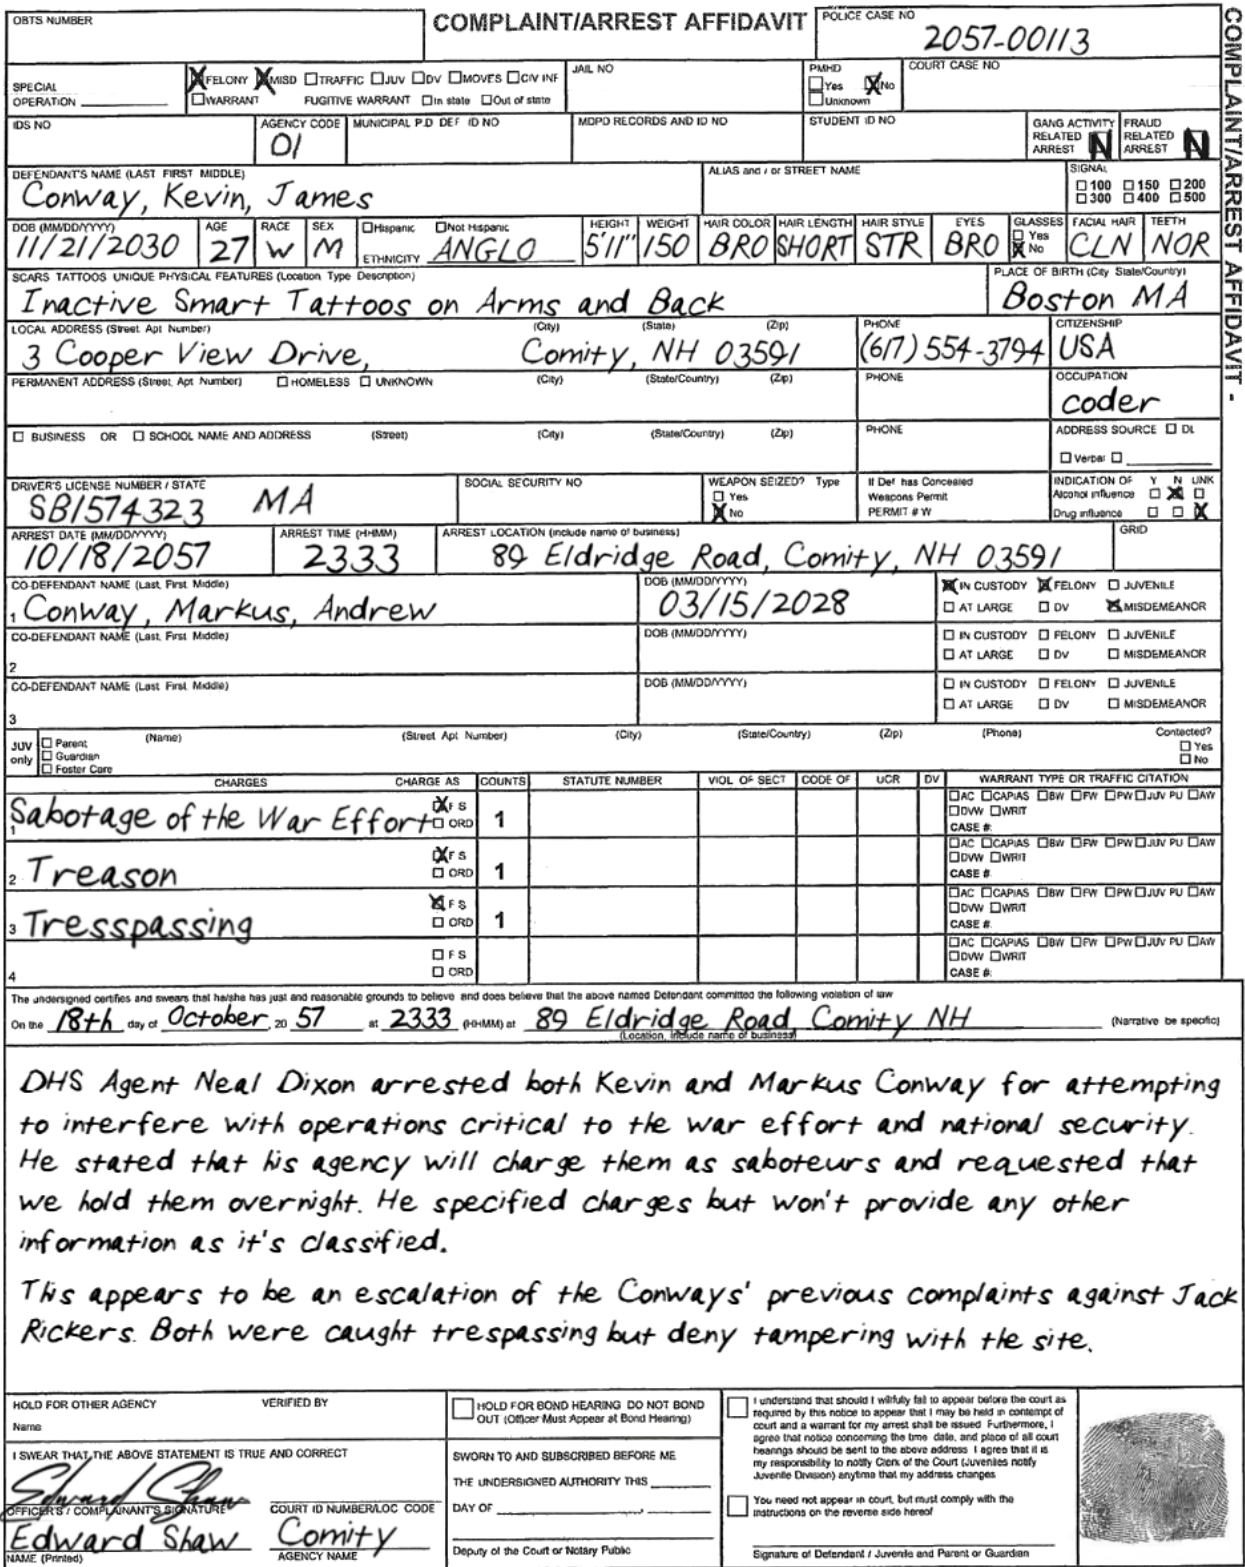 OBTS NUMBER
COMPLAINT/ARREST AFFIDAVIT
POLICE CASE NO
2057-00113
COMPLAINT/ARREST AFFIDAVIT -
SPECIAL OPERATION
FELONY MISD TRAFFIC JUV DV MOVES CIV INF
WARRANT FUGITIVE WARRANT In state Out of state
JAIL NO
PMHD
Yes No
Unknown
COURT CASE NO
IDS NO
AGENCY CODE
01
MUNICIPAL P.D DEF ID NO
MDPD RECORDS AND ID NO
STUDENT ID NO
GANG ACTIVITY RELATED ARREST N
FRAUD RELATED ARREST N
DEFENDANT'S NAME (LAST FIRST MIDDLE)
Conway, Kevin, James
ALIAS and / or STREET NAME
SIGNAL
100 150 200
300 400 500
DOB (MM/DD/YYYY)
11/21/2030
AGE
27
RACE
W
SEX
M
Hispanic Not Hispanic
ETHNICITY ANGLO
HEIGHT
5'11"
WEIGHT
150
HAIR COLOR
BRO
HAIR LENGTH
SHORT
HAIR STYLE
STR
EYES
BRO
GLASSES
Yes
No
FACIAL HAIR
CLN
TEETH
NOR
SCARS TATTOOS UNIQUE PHYSICAL FEATURES (Location Type Description)
Inactive Smart Tattoos on Arms and Back
PLACE OF BIRTH (City State/Country)
Boston MA
LOCAL ADDRESS (Street Apt Number) (City) (State) (Zip)
3 Cooper View Drive, Comity, NH 03591
PHONE
(617) 554-3794
CITIZENSHIP
USA
PERMANENT ADDRESS (Street, Apt Number) HOMELESS UNKNOWN (City) (State/Country) (Zip)
PHONE
OCCUPATION
coder
BUSINESS OR SCHOOL NAME AND ADDRESS (Street) (City) (State/Country) (Zip)
PHONE
ADDRESS SOURCE DL
Verbal
DRIVER'S LICENSE NUMBER / STATE
SB1574323 MA
SOCIAL SECURITY NO
WEAPON SEIZED? Type
Yes
No
If Def has Concealed
Weapons Permit
PERMIT # W
INDICATION OF Y N UNK
Alcohol influence
Drug influence
ARREST DATE (MM/DD/YYYY)
10/18/2057
ARREST TIME (HHMM)
2333
ARREST LOCATION (include name of business)
89 Eldridge Road, Comity, NH 03591
GRID
CO-DEFENDANT NAME (Last, First Middle)
1 Conway, Markus, Andrew
DOB (MM/DD/YYYY)
03/15/2028
IN CUSTODY FELONY JUVENILE
AT LARGE DV MISDEMEANOR
CO-DEFENDANT NAME (Last, First Middle)
2
DOB (MM/DD/YYYY)
IN CUSTODY FELONY JUVENILE
AT LARGE DV MISDEMEANOR
CO-DEFENDANT NAME (Last First Middle)
3
DOB (MM/DD/YYYY)
IN CUSTODY FELONY JUVENILE
AT LARGE DV MISDEMEANOR
JUV only
Parent
Guardian
Foster Care
(Name) (Street Apt Number) (City) (State/Country) (Zip) (Phone)
Contacted?
Yes
No
CHARGES CHARGE AS COUNTS STATUTE NUMBER VIOL OF SECT CODE OF UCR DV WARRANT TYPE OR TRAFFIC CITATION
1 Sabotage of the War Effort F S ORD 1
AC CAPIAS BW FW PW JUV PU AW
DVW WRIT
CASE #
2 Treason F S ORD 1
AC CAPIAS BW FW PW JUV PU AW
DVW WRIT
CASE #
3 Tresspassing F S ORD 1
AC CAPIAS BW FW PW JUV PU AW
DVW WRIT
CASE #
4 F S ORD
AC CAPIAS BW FW PW JUV PU AW
DVW WRIT
CASE #
The undersigned certifies and swears that he/she has just and reasonable grounds to believe and does believe that the above named Defendant committed the following violation of law
On the 18th day of October, 20 57 at 2333 (HHMM) at 89 Eldridge Road, Comity NH (Narrative be specific)
(Location, include name of business)
DHS Agent Neal Dixon arrested both Kevin and Markus Conway for attempting
to interfere with operations critical to the war effort and national security.
He stated that his agency will charge them as saboteurs and requested that
we hold them overnight. He specified charges but won't provide any other
information as it's classified.
This appears to be an escalation of the Conways' previous complaints against Jack
Rickers. Both were caught trespassing but deny tampering with the site.
HOLD FOR OTHER AGENCY VERIFIED BY
Name
I SWEAR THAT THE ABOVE STATEMENT IS TRUE AND CORRECT
Edward Shaw
OFFICER'S / COMPLAINANT'S SIGNATURE
COURT ID NUMBER/LOC CODE
Edward Shaw
NAME (Printed)
Comity
AGENCY NAME
HOLD FOR BOND HEARING DO NOT BOND
OUT (Officer Must Appear at Bond Hearing)
SWORN TO AND SUBSCRIBED BEFORE ME
THE UNDERSIGNED AUTHORITY THIS
DAY OF
Deputy of the Court or Notary Public
I understand that should I willfully fail to appear before the court as
required by this notice to appear that I may be held in contempt of
court and a warrant for my arrest shall be issued Furthermore, I
agree that notice concerning the time date, and place of all court
hearings should be sent to the above address I agree that it is
my responsibility to notify Clerk of the Court (Juveniles notify
Juvenile Division) anytime that my address changes
You need not appear in court, but must comply with the
instructions on the reverse side hereof
Signature of Defendant / Juvenile and Parent or Guardian